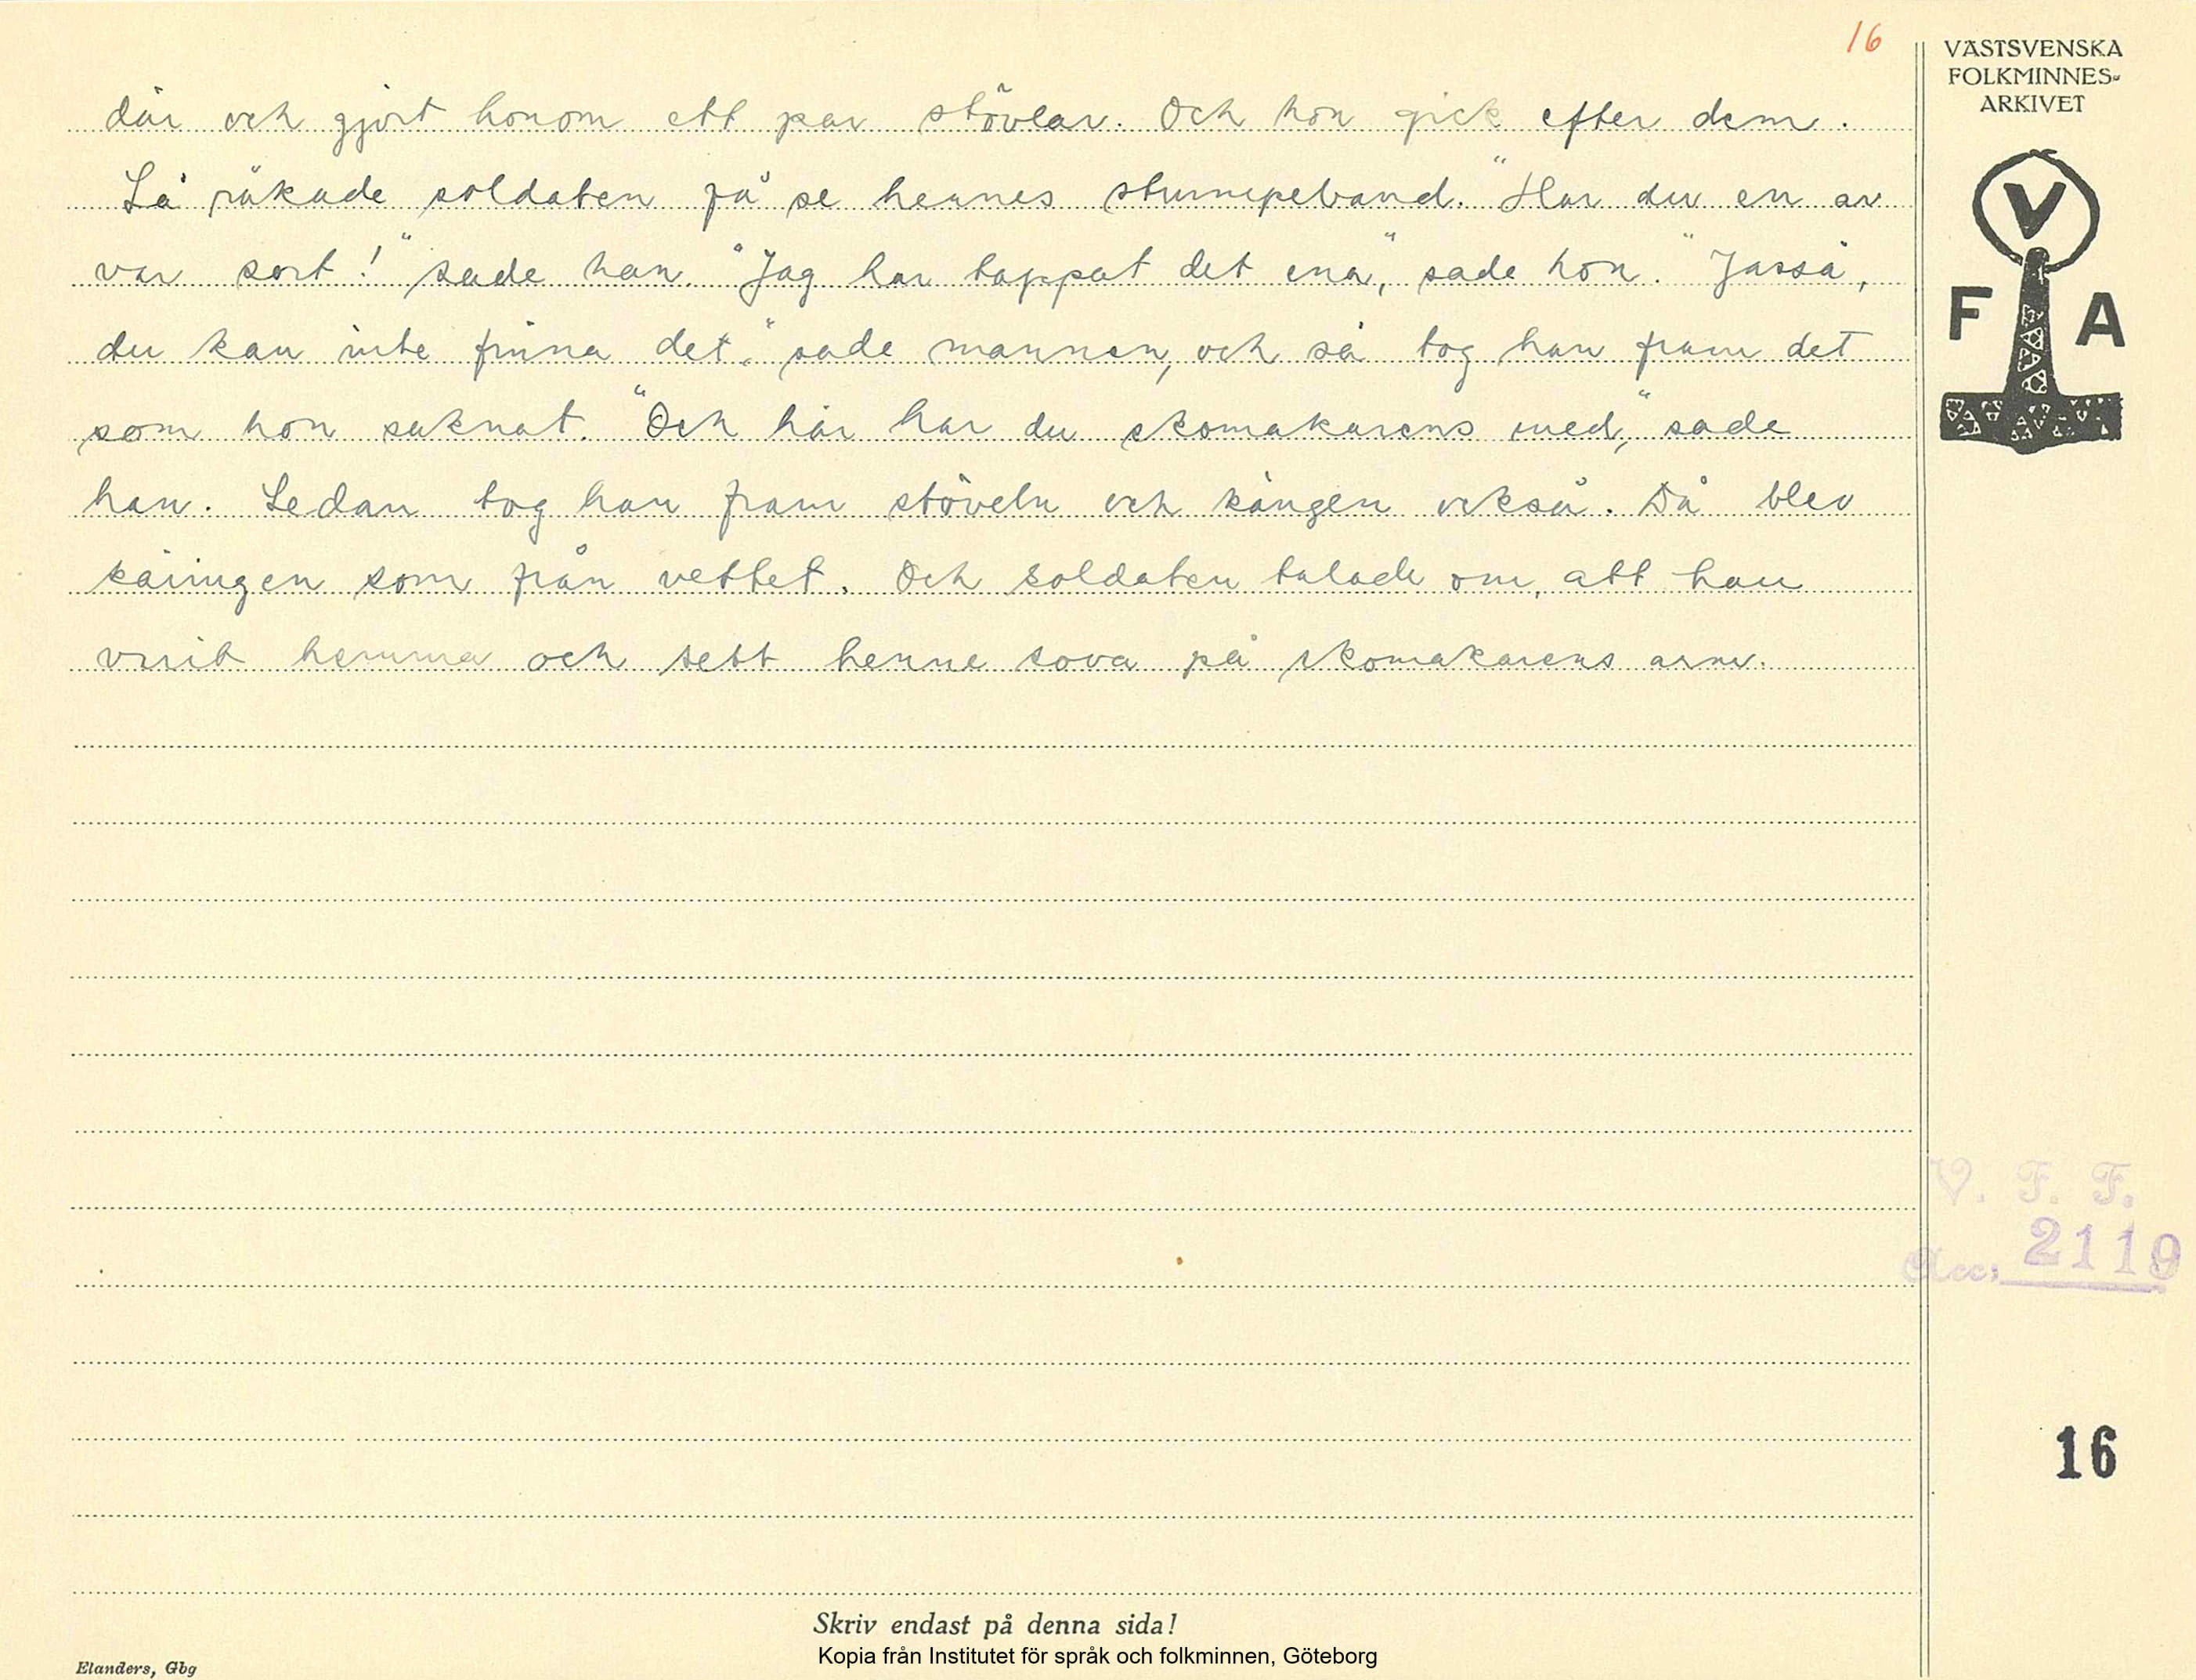 16
VÄSTSVENSKA
FOLKMINNES-
ARKIVET
V
F A
där och gjort honom ett par stövlar. Och hon gick efter dem.
Så råkade soldaten få se hennes strumpeband. "Har du en av
var sort!" sade han. "Jag har tappat det ena", sade hon. "Jasså,
du kan inte finna det." sade mannen, och så tog han fram det
som hon saknat. "Och här har du skomakarens med," sade
han. Sedan tog han fram stöveln och kängen också. Då blev
käringen som från vettet. Och soldaten talade om, att han
varit hemma och sett henne sova på skomakarens arm.
V. F. F.
Acc: 2119
16
Skriv endast på denna sida!
Kopia från Institutet för språk och folkminnen, Göteborg
Elanders, Gbg